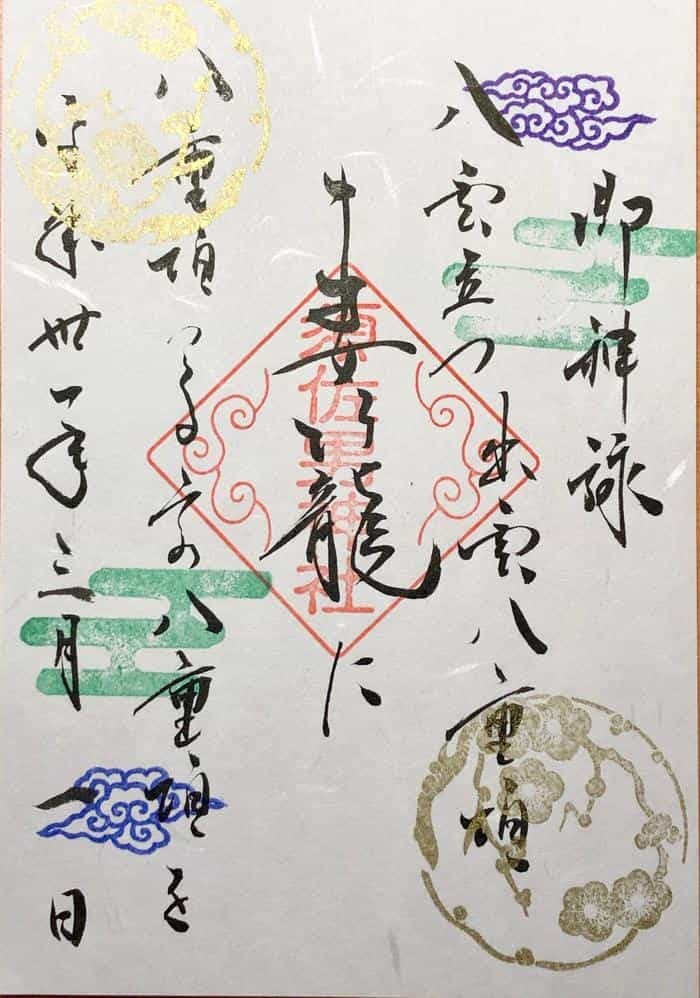 御神詠
八雲立つ出雲八重垣
妻籠に
須佐男神社
八重垣つくるその八重垣を
平成卅一年三月一日